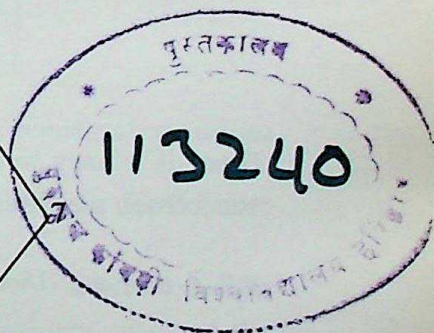 पुस्तकालय
113240
7
गुरुकुल कांगड़ी विश्वविद्यालय हरिद्वार